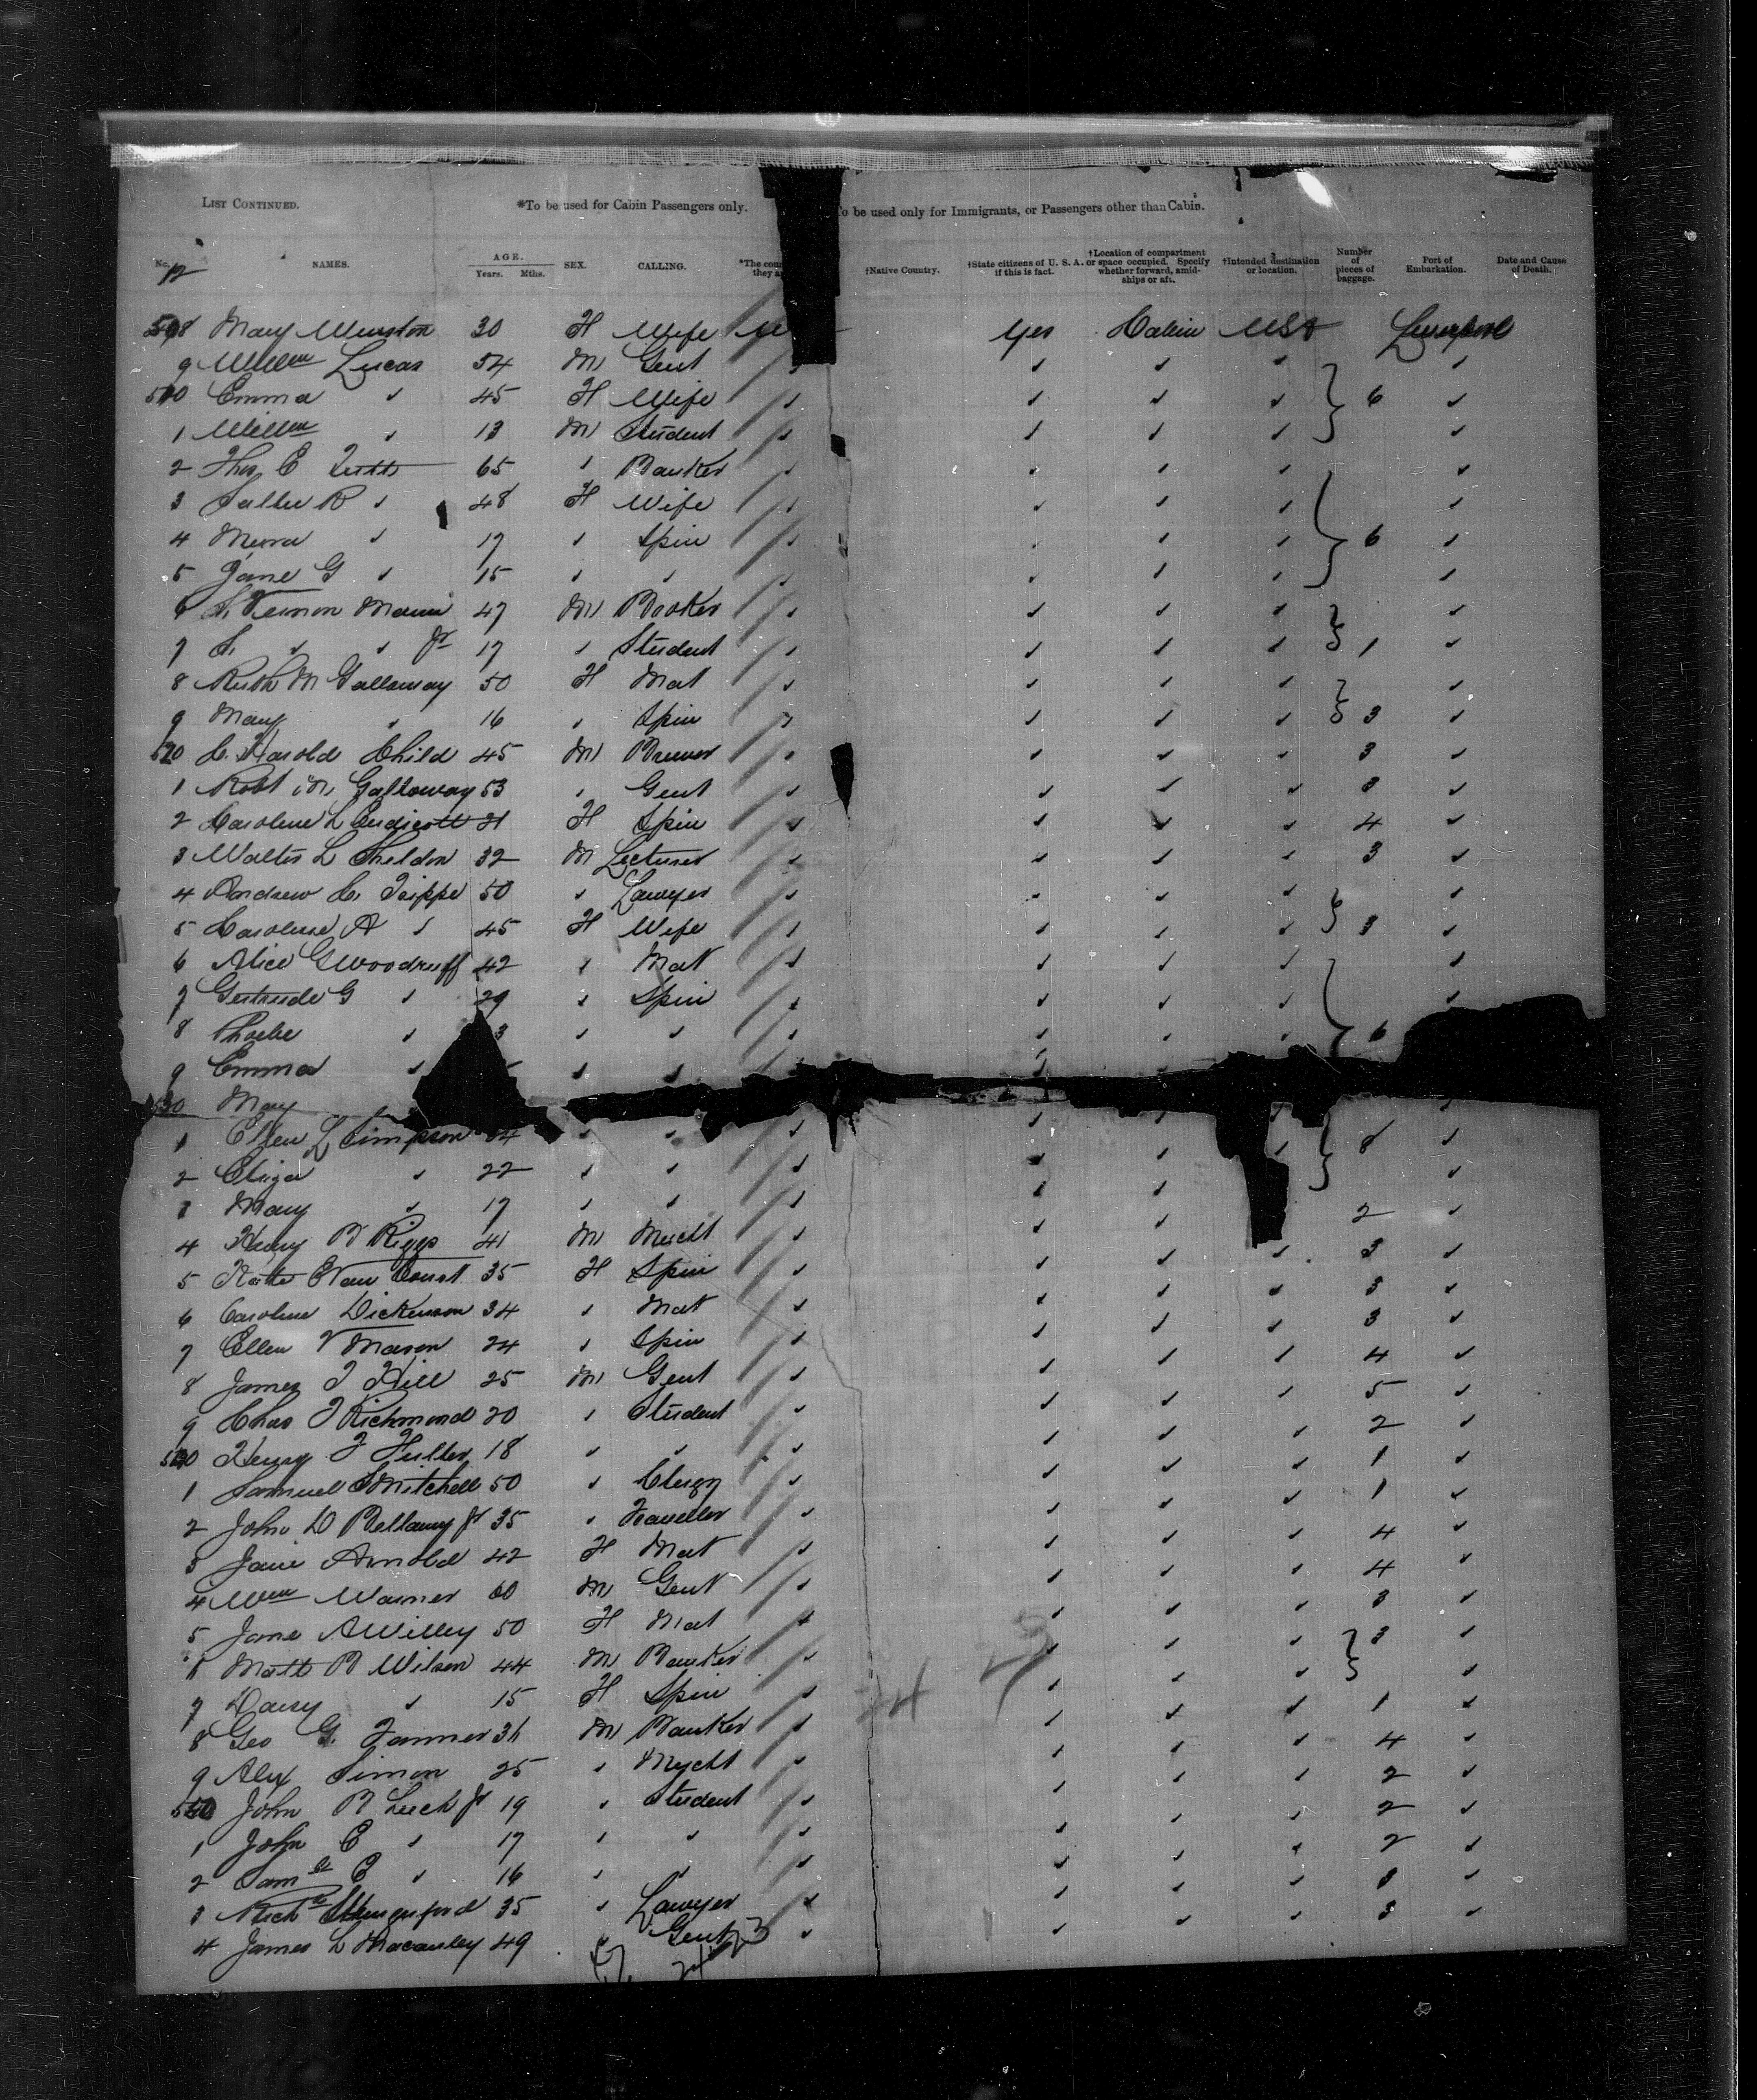 LIST CONTINUED. *To be used for Cabin Passengers only. To be used only for Immigrants, or Passengers other than Cabin.
No. NAMES. AGE. Years. Mths. SEX. CALLING. *The coun they †Native Country. †State citizens of U. S. A. if this is fact. †Location of compartment or space occupied. Specify whether forward, amidships or aft. †Intended destination or location. Number of pieces of baggage. Port of Embarkation. Date and Cause of Death.
12
508 Mary Winston 30 F Wife Yes Cabin USA Liverpool
9 Willm Lucas 54 M Gent
510 Emma " 45 F Wife 6
1 Willm " 13 M Student
2 Thos E 65 " Banker
3 Sallie R " 48 F Wife
4 " 17 " Spin 6
5 Jane G " 15 " "
6 S. Vernon Mann 47 M Broker
7 S. " " Jr 17 " Student 1
8 Ruth M Galloway 50 F Mat
9 Mary " 16 " Spin 3
520 C. Harold Child 45 M Brewer 3
1 Robt M Galloway 53 " Gent 3
2 Caroline L Endicott 21 F Spin 4
3 Walter L Sheldon 32 M Lecturer 3
4 Andrew C. Trippe 50 " Lawyer
5 Caroline A " 45 F Wife 3
6 Alice G Woodruff 42 " Mat
7 Gertrude G " 29 " Spin
8 Phoebe " 3 " " 6
9 Emma " " "
530 May
1 Ellen L Simpson 24 " " 8
2 Eliza " 22 " "
3 Mary " 17 " " 2
4 Henry B Riggs 41 M Mercht 3
5 Kate E Van 35 F Spin 3
6 Caroline Dickenson 34 " Mat 3
7 Ellen V Mason 24 " Spin 4
8 James T Hill 25 M Gent 5
9 Chas T Richmond 20 " Student 2
540 Henry F Fuller 18 " " 1
1 Samuel S Mitchell 50 " Clergy 1
2 John D Bellamy Jr 35 " Traveller 4
3 Jane Arnold 42 F Mat 4
4 Wm Warner 60 M Gent 3
5 Jane A Willey 50 F Mat 3
6 Matt B Wilson 44 M Banker
7 Daisy " 15 F Spin 1
8 Geo G. Farmer 36 M Banker 4
9 Alex Simon 25 " Mercht 2
550 John B Leech Jr 19 " Student 2
1 John C " 17 " " 2
2 Saml C " 16 " " 3
3 Richd 35 " Lawyer 3
4 James L Macauley 49 " Gent
24 23